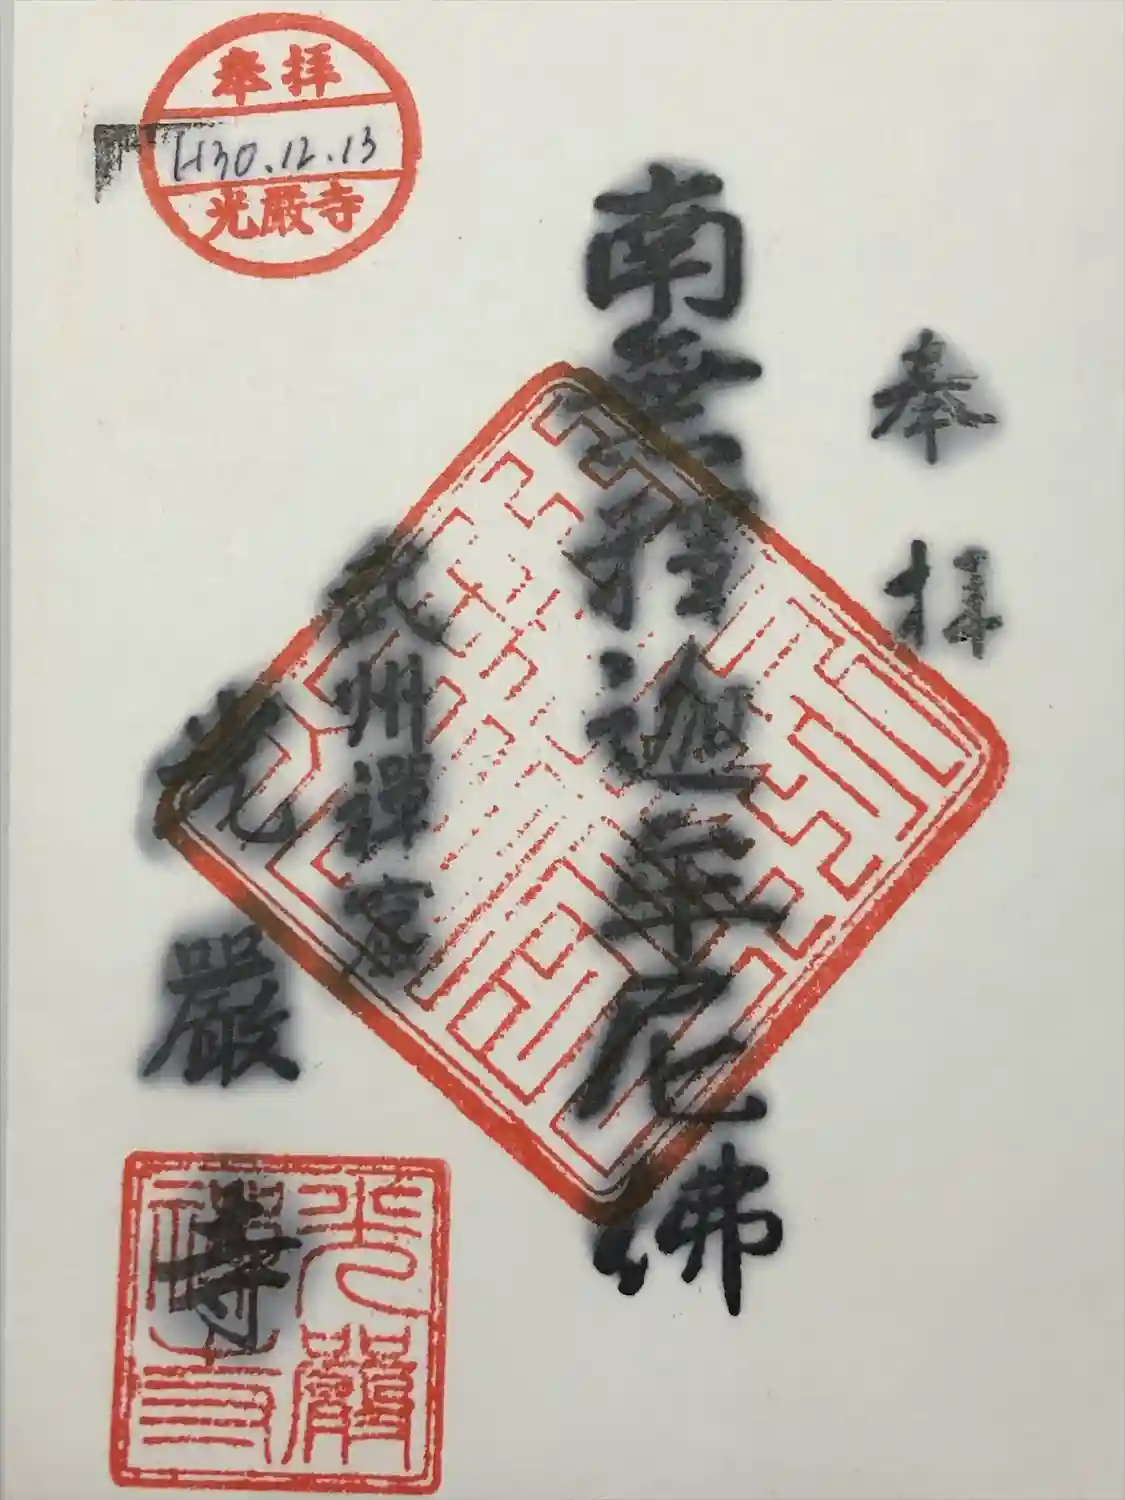 奉拝
H30.12.13
光嚴寺
奉拝
南無釋迦牟尼佛
武州禪窟
光嚴寺